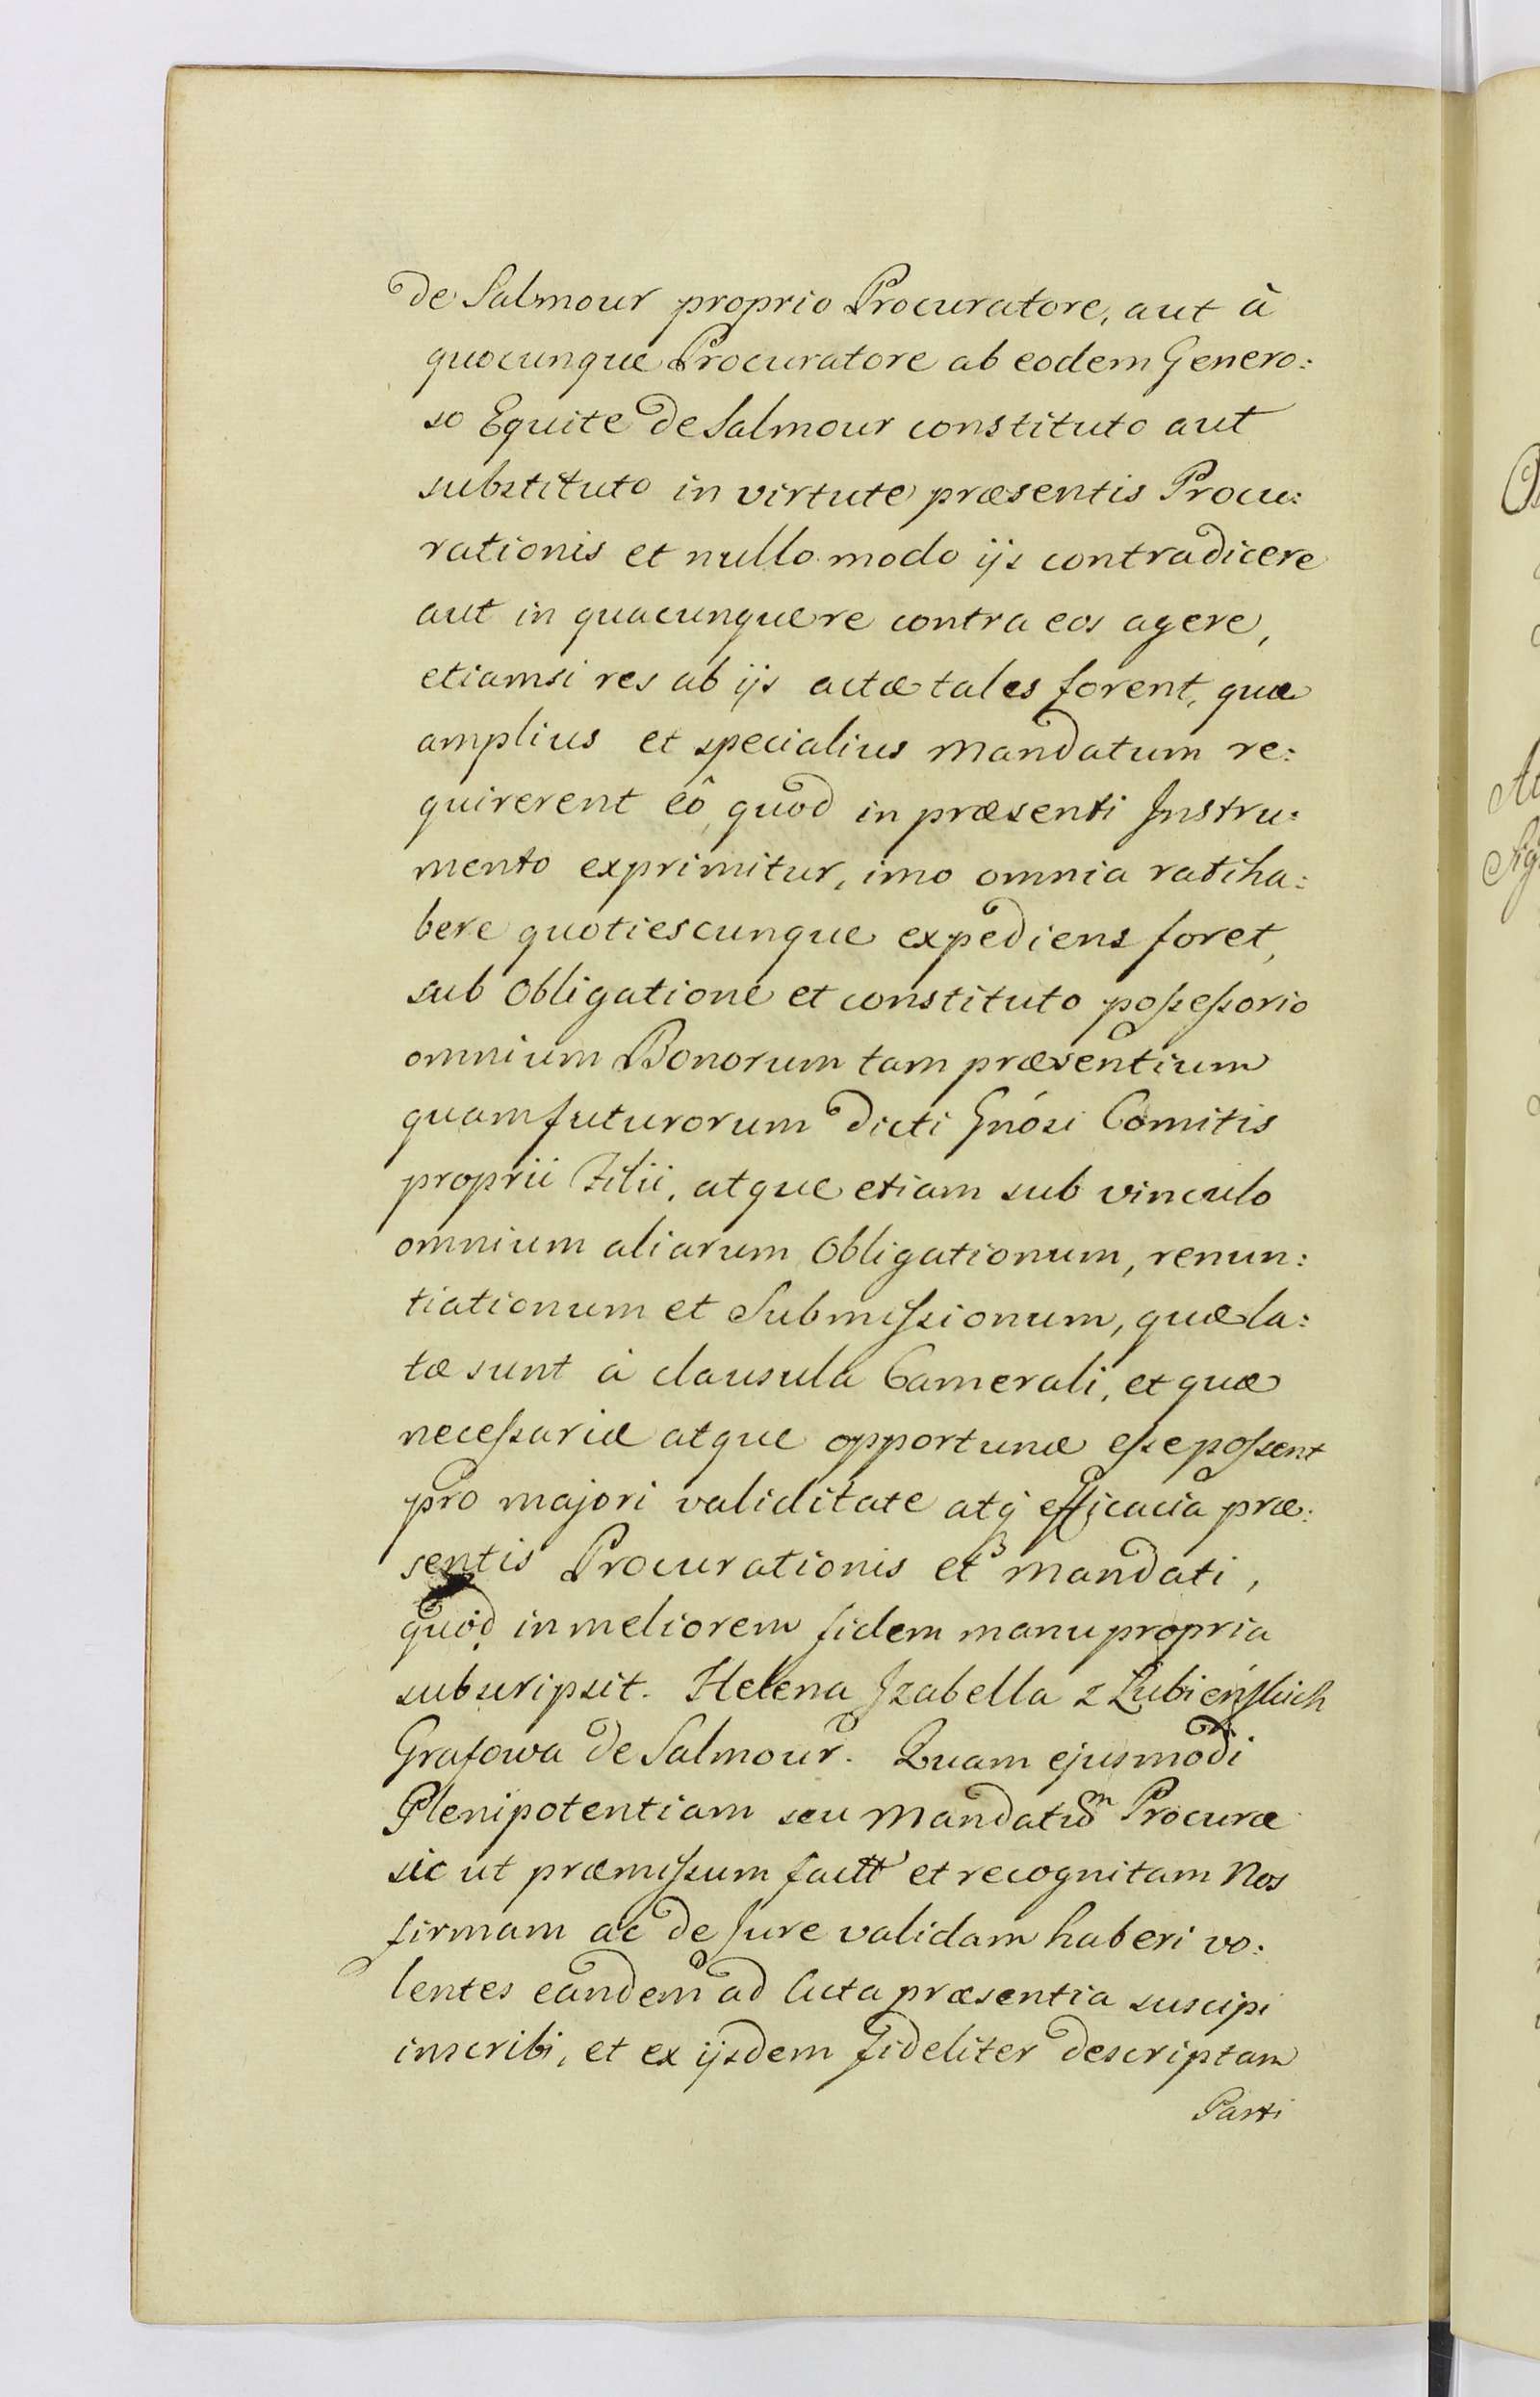 de Salmour proprio Procuratore, aut à
quocunque Procuratore ab eodem Genero:
so Equite de Salmour constituto aut
substituto in virtute præsentis Procu:
rationis et nullo modo ijs contradicere
aut in quacunque re contra eos agere,
etiamsi res ab ijs actæ tales forent, quæ
amplius et specialius mandatum re:
quirerent eô, quod in præsenti Instru:
mento exprimitur, imo omnia ratiha:
bere quotiescunque expediens foret,
sub Obligatione et constituto poßeßorio
omnium Bonorum tam præsentium
quam futurorum dicti Gnósi Comitis
proprii Filii, atque etiam sub vinculo
omnium aliarum Obligationum, renun:
tiationum et Submißionum, quæ la:
tæ sunt à clausula Camerali, et quæ
neceßariæ atque opportunæ eße poßent
pro majori validitate atq́ efficacia præ:
sentis Procurationis et Mandati,
quod in meliorem fidem manu propria
subscripsit. Helena Izabella z Łubieńskich
Grafowa de Salmour. Quam ejusmodi
Plenipotentiam seu Mandatum Procuræ
sic ut præmißum factt et recognitam Nos
firmam ac de Jure validam haberi vo:
lentes eandem ad Acta præsentia suscipi
inscribi, et ex ijsdem fideliter descriptam
Parti